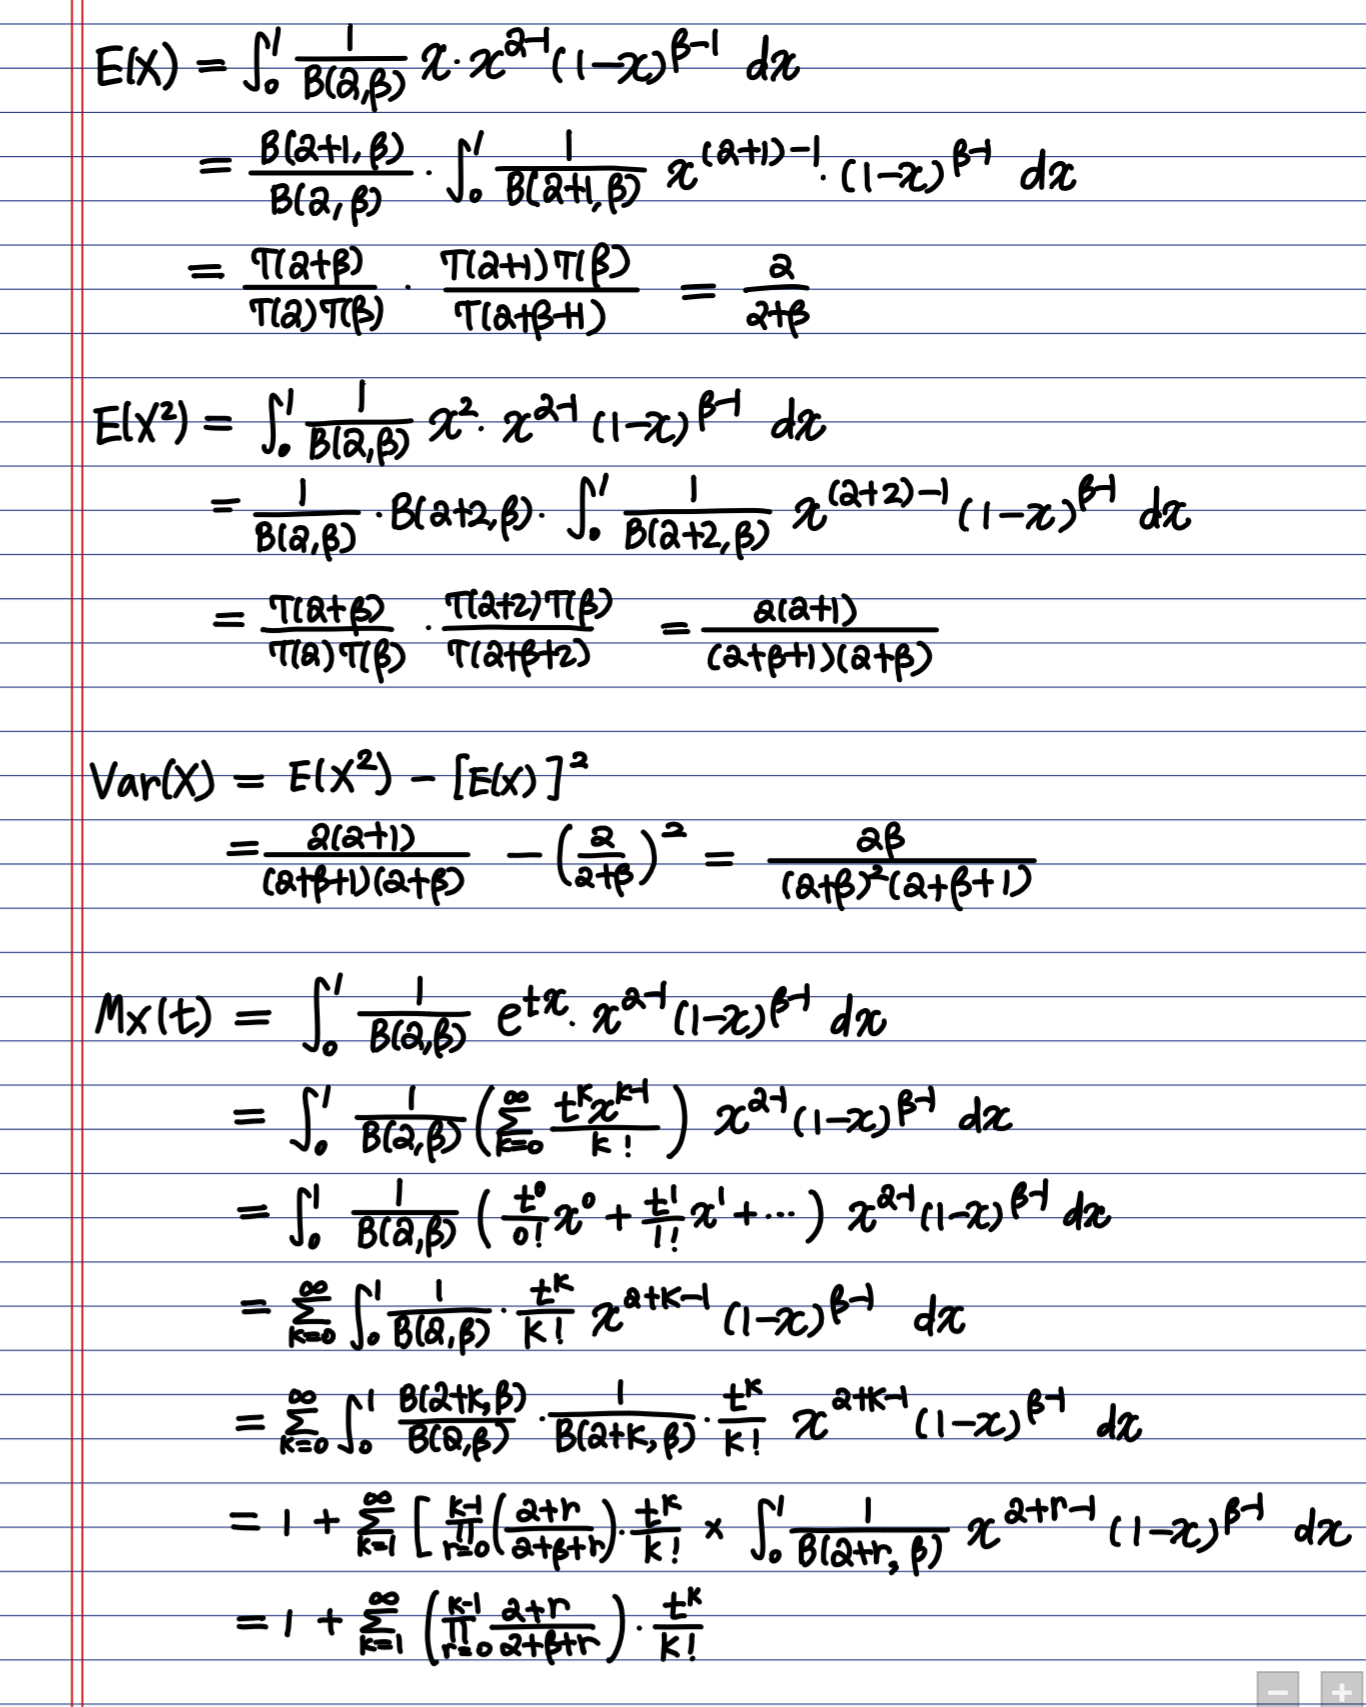 E(X) = ∫₀¹ 1/B(α,β) x · x^(α-1) (1-x)^(β-1) dx
= B(α+1, β)/B(α, β) · ∫₀¹ 1/B(α+1, β) x^((α+1)-1) · (1-x)^(β-1) dx
= Γ(α+β)/Γ(α)Γ(β) · Γ(α+1)Γ(β)/Γ(α+β+1) = α/α+β
E(X²) = ∫₀¹ 1/B(α,β) x² · x^(α-1) (1-x)^(β-1) dx
= 1/B(α,β) · B(α+2, β) · ∫₀¹ 1/B(α+2, β) x^((α+2)-1) (1-x)^(β-1) dx
= Γ(α+β)/Γ(α)Γ(β) · Γ(α+2)Γ(β)/Γ(α+β+2) = α(α+1)/(α+β+1)(α+β)
Var(X) = E(X²) - [E(X)]²
= α(α+1)/(α+β+1)(α+β) - (α/α+β)² = αβ/(α+β)²(α+β+1)
Mx(t) = ∫₀¹ 1/B(α,β) e^(tx) · x^(α-1) (1-x)^(β-1) dx
= ∫₀¹ 1/B(α,β) (∑_(k=0)^∞ t^k x^(k-1)/k!) x^(α-1) (1-x)^(β-1) dx
= ∫₀¹ 1/B(α,β) (t⁰/0! x⁰ + t¹/1! x¹ + ⋯) x^(α-1) (1-x)^(β-1) dx
= ∑_(k=0)^∞ ∫₀¹ 1/B(α,β) · t^k/k! x^(α+k-1) (1-x)^(β-1) dx
= ∑_(k=0)^∞ ∫₀¹ B(α+k, β)/B(α,β) · 1/B(α+k, β) · t^k/k! x^(α+k-1) (1-x)^(β-1) dx
= 1 + ∑_(k=1)^∞ [ ∏_(r=0)^(k-1) (α+r/α+β+r) · t^k/k! × ∫₀¹ 1/B(α+r, β) x^(α+r-1) (1-x)^(β-1) dx
= 1 + ∑_(k=1)^∞ (∏_(r=0)^(k-1) α+r/α+β+r) · t^k/k!
− +